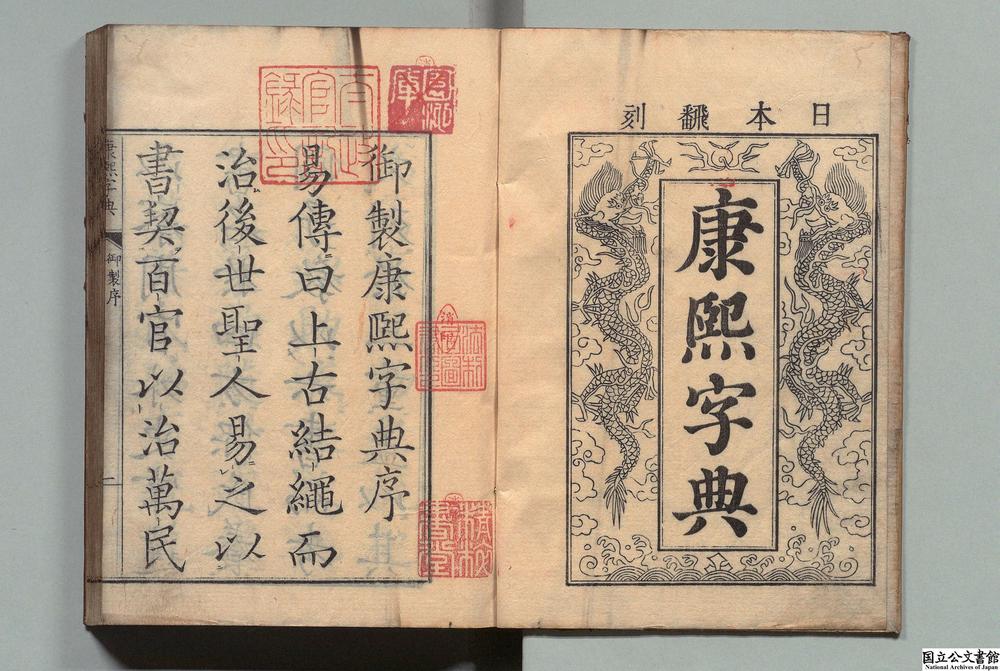 日本飜刻
康熙字典
御製康熙字典序
易傳曰上古結繩而
治後世聖人易之以
書契百官以治萬民
康熙字典
御製序
一
国立公文書館
National Archives of Japan